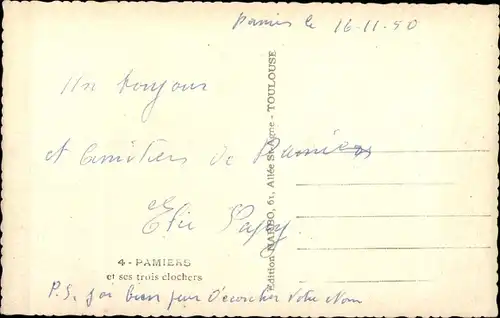 Pamiers le 16-11-50
Un bonjour
et Amitiers de Pamiers
Elie
4 - PAMIERS
et ses trois clochers
P.S. j'ai bien peur D'écorcher Votre Nom
Edition NARBO, 61, Allée St-Agne - TOULOUSE